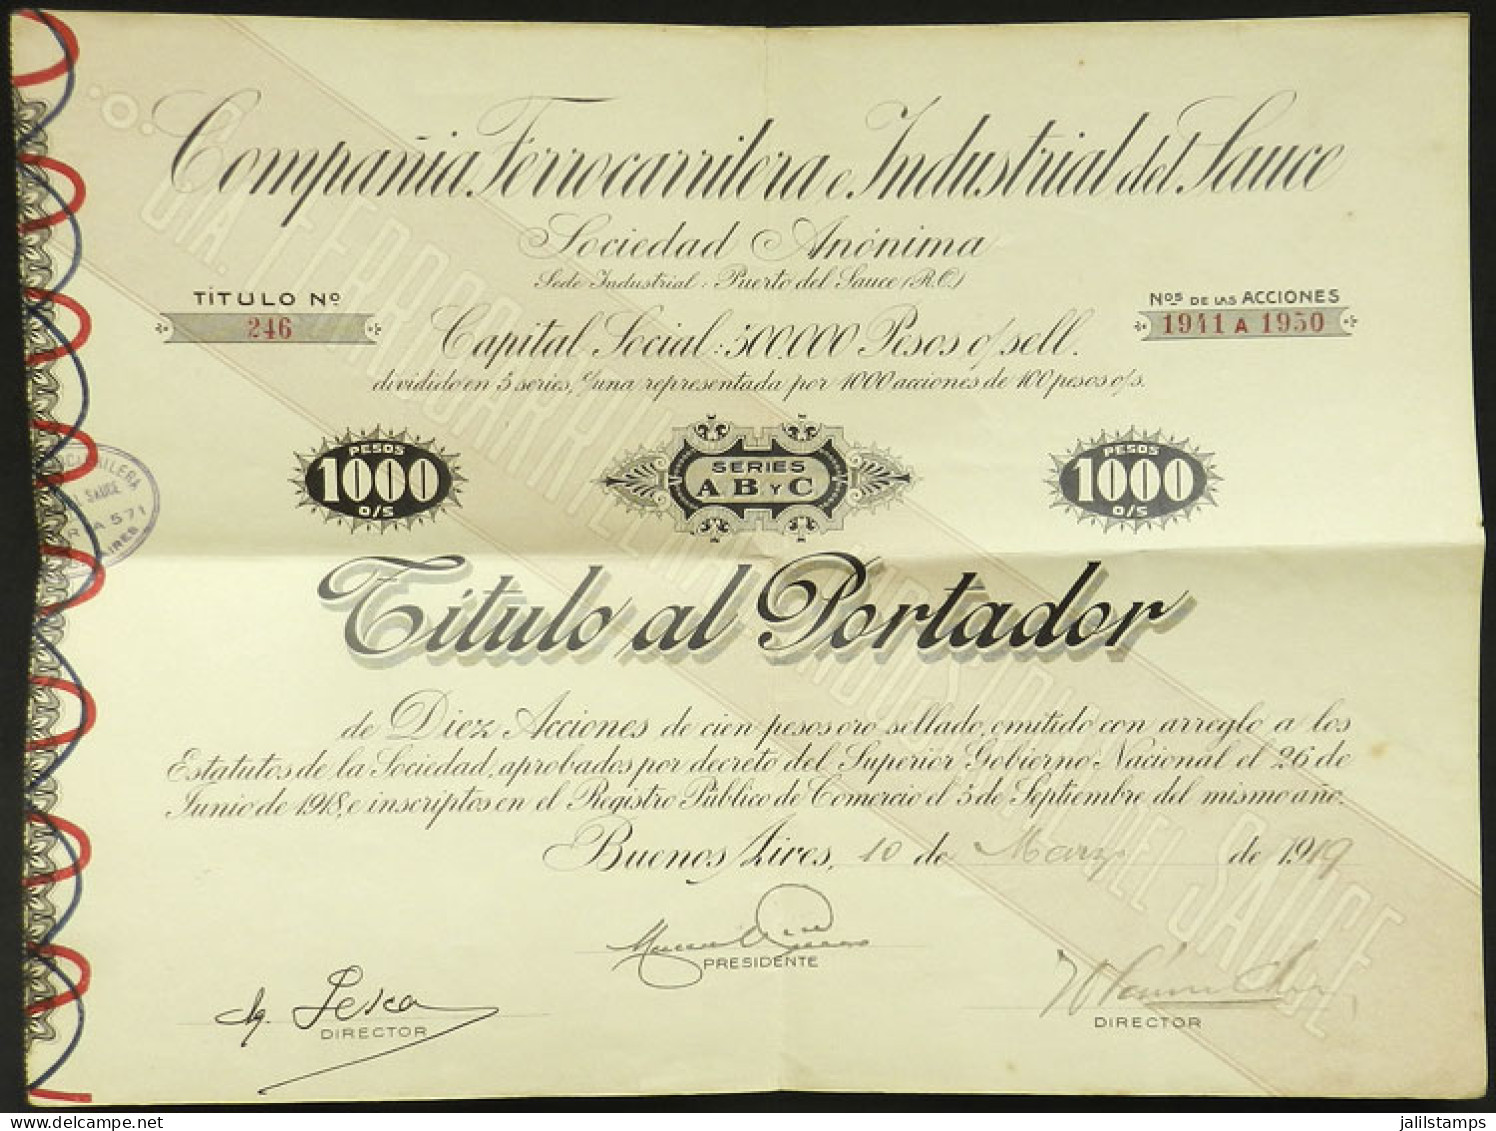 Compañia Ferrocarrilera e Industrial del Sauce
Sociedad Anónima
Sede Industrial: Puerto del Sauce (R.O.)
TÍTULO Nº
246
Nos DE LAS ACCIONES
1941 A 1950
Capital Social: 500.000 Pesos o/sell.
dividido en 5 series, c/una representada por 1000 acciones de 100 pesos o/s.
PESOS
1000
O/S
SERIES
A B Y C
PESOS
1000
O/S
Título al Portador
de Diez Acciones de cien pesos oro sellado, emitido con arreglo a los
Estatutos de la Sociedad, aprobados por decreto del Superior Gobierno Nacional el 26 de
Junio de 1918, e inscriptos en el Registro Público de Comercio el 5 de Septiembre del mismo año.
Buenos Aires, 10 de Marzo de 1919
PRESIDENTE
DIRECTOR
DIRECTOR
CIA. FERROCARRILERA E INDUSTRIAL DEL SAUCE
SAUCE
571
jalilstamps